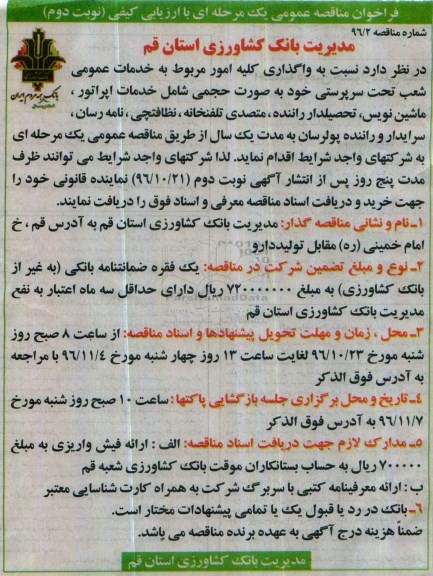 فراخوان مناقصه عمومی یک مرحله ای با ارزیابی کیفی (نوبت دوم)
شماره مناقصه ۹۶/۲
مدیریت بانک کشاورزی استان قم
در نظر دارد نسبت به واگذاری کلیه امور مربوط به خدمات عمومی
شعب تحت سرپرستی خود به صورت حجمی شامل خدمات اپراتور ،
ماشین نویس، تحصیلدار راننده ، متصدی تلفنخانه ، نظافتچی ، نامه رسان ،
سرایدار و راننده پولرسان به مدت یک سال از طریق مناقصه عمومی یک مرحله ای
به شرکتهای واجد شرایط اقدام نماید. لذا شرکتهای واجد شرایط می توانند ظرف
مدت پنج روز پس از انتشار آگهی نوبت دوم (۹۶/۱۰/۲۱) نماینده قانونی خود را
جهت خرید و دریافت اسناد مناقصه معرفی و اسناد فوق را دریافت نمایند.
۱ـ نام و نشانی مناقصه گذار: مدیریت بانک کشاورزی استان قم به آدرس قم ، خ
امام خمینی (ره) مقابل تولیددارو
۲ـ نوع و مبلغ تضمین شرکت در مناقصه: یک فقره ضمانتنامه بانکی (به غیر از
بانک کشاورزی) به مبلغ ۷۲۰۰۰۰۰۰۰ ریال دارای حداقل سه ماه اعتبار به نفع
مدیریت بانک کشاورزی استان قم
۳ـ محل ، زمان و مهلت تحویل پیشنهادها و اسناد مناقصه: از ساعت ۸ صبح روز
شنبه مورخ ۹۶/۱۰/۲۳ لغایت ساعت ۱۳ روز چهار شنبه مورخ ۹۶/۱۱/۴ با مراجعه
به آدرس فوق الذکر
۴ـ تاریخ و محل برگزاری جلسه بازگشایی پاکتها: ساعت ۱۰ صبح روز شنبه مورخ
۹۶/۱۱/۷ به آدرس فوق الذکر
۵ـ مدارک لازم جهت دریافت اسناد مناقصه: الف : ارائه فیش واریزی به مبلغ
۷۰۰۰۰۰ ریال به حساب بستانکاران موقت بانک کشاورزی شعبه قم
ب : ارائه معرفینامه کتبی با سربرگ شرکت به همراه کارت شناسایی معتبر
۶ـ بانک در رد یا قبول یک یا تمامی پیشنهادات مختار است.
ضمناً هزینه درج آگهی به عهده برنده مناقصه می باشد.
مدیریت بانک کشاورزی استان قم